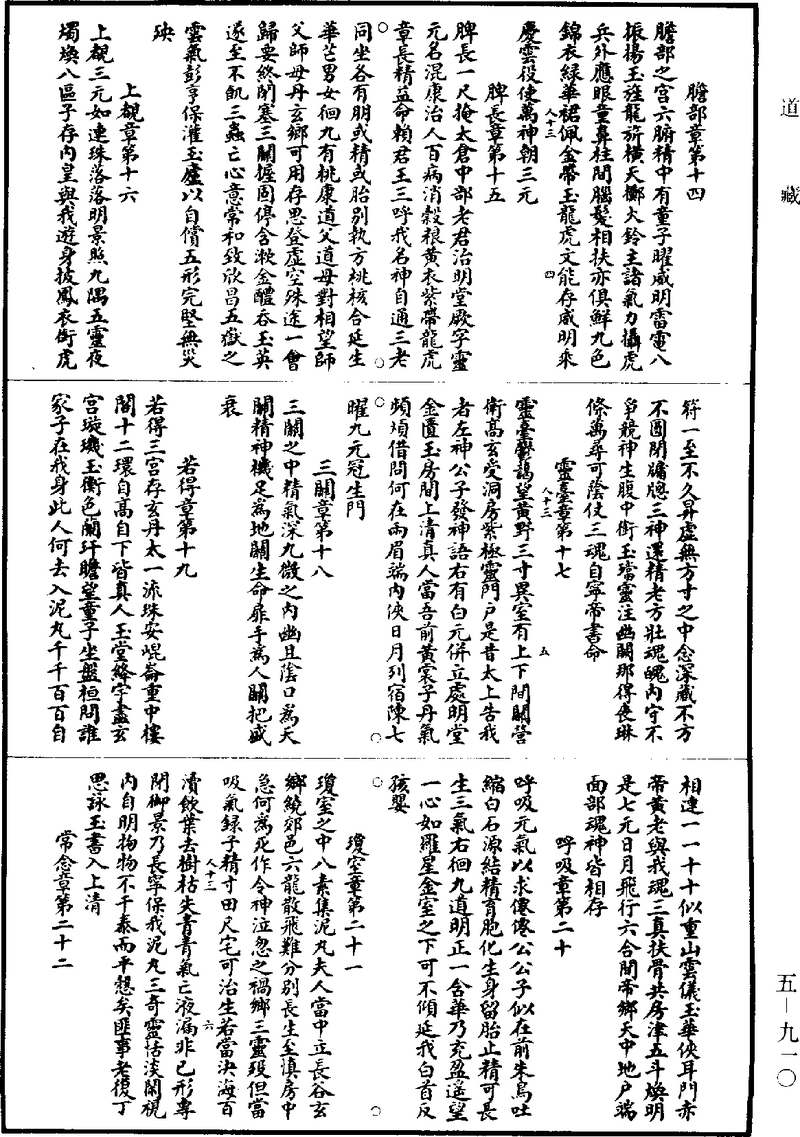 道藏
膽部章第十四
膽部之宮六腑精中有童子曜威明雷電八
振揚玉旌龍旂橫天擲火鈴主諸氣力攝虎
兵外應眼童鼻柱間腦髮相扶亦俱鮮九色
錦衣綠華裙佩金帶玉龍虎文能存威明乘
慶雲役使萬神朝三元
人十三
四
脾長章第十五
脾長一尺掩太倉中部老君治明堂厥字靈
元名混康治人百病消穀粮黃衣紫帶龍虎
章長精益命賴君王三呼我名神自通三老
同坐各有朋或精或胎別執方桃核合延生
華芒男女徊九有桃康道父道母對相望師
父師母丹玄鄉可用存思登虛空殊途一會
歸要終閉塞三關握固停含漱金醴吞玉英
遂至不飢三蟲亡心意常和致欣昌五嶽之
雲氣彭亨保灌玉廬以自償五形完堅無災
殃
上覩章第十六
上覩三元如連珠落落明景照九隅五靈夜
燭煥八區子存內皇與我遊身披鳳衣銜虎
符一至不久昇虛無方寸之中念深藏不方
不圓閉牖牕三神還精老方壯魂魄內守不
爭競神生腹中銜玉璫靈注幽闕那得喪琳
條萬尋可蔭仗三魂自寧帝書命
靈臺章第十七
人十三
五
靈臺鬱藹望黃野三寸異室有上下間關營
衛高玄受洞房紫極靈門戶是昔太上告我
者左神公子發神語右有白元併立處明堂
金匱玉房間上清真人當吾前黃裳子丹氣
頻煩借問何在兩眉端內俠日月列宿陳七
曜九元冠生門
三關章第十八
三關之中精氣深九微之內幽且陰口為天
關精神機足為地關生命扉手為人關把盛
衰
若得章第十九
若得三宮存玄丹太一流珠安崐崙重中樓
閣十二環自高自下皆真人玉堂絳宇盡玄
宮璇璣玉衡色蘭玕瞻望童子坐盤桓問誰
家子在我身此人何去入泥丸千千百百自
相連一一十十似重山雲儀玉華俠耳門赤
帝黃老與我魂三真扶骨共房津五斗煥明
是七元日月飛行六合間帝鄉天中地戶端
面部魂神皆相存
呼吸章第二十
呼吸元氣以求僊僊公公子似在前朱鳥吐
縮白石源結精育胞化生身留胎止精可長
生三氣右徊九道明正一含華乃充盈遙望
一心如羅星金室之下可不傾延我白首反
孩嬰
瓊室章第二十一
瓊室之中八素集泥丸夫人當中立長谷玄
鄉繞郊邑六龍散飛難分別長生至慎房中
急何為死作令神泣忽之禍鄉三靈歿但當
吸氣錄子精寸田尺宅可治生若當決海百
人十三
六
瀆飲葉去樹枯失青青氣亡液漏非己形專
閉御景乃長寧保我泥丸三奇靈恬淡閑視
內自明物物不干泰而平慤矣匪事老復丁
思詠玉書入上清
常念章第二十二
五—九一〇